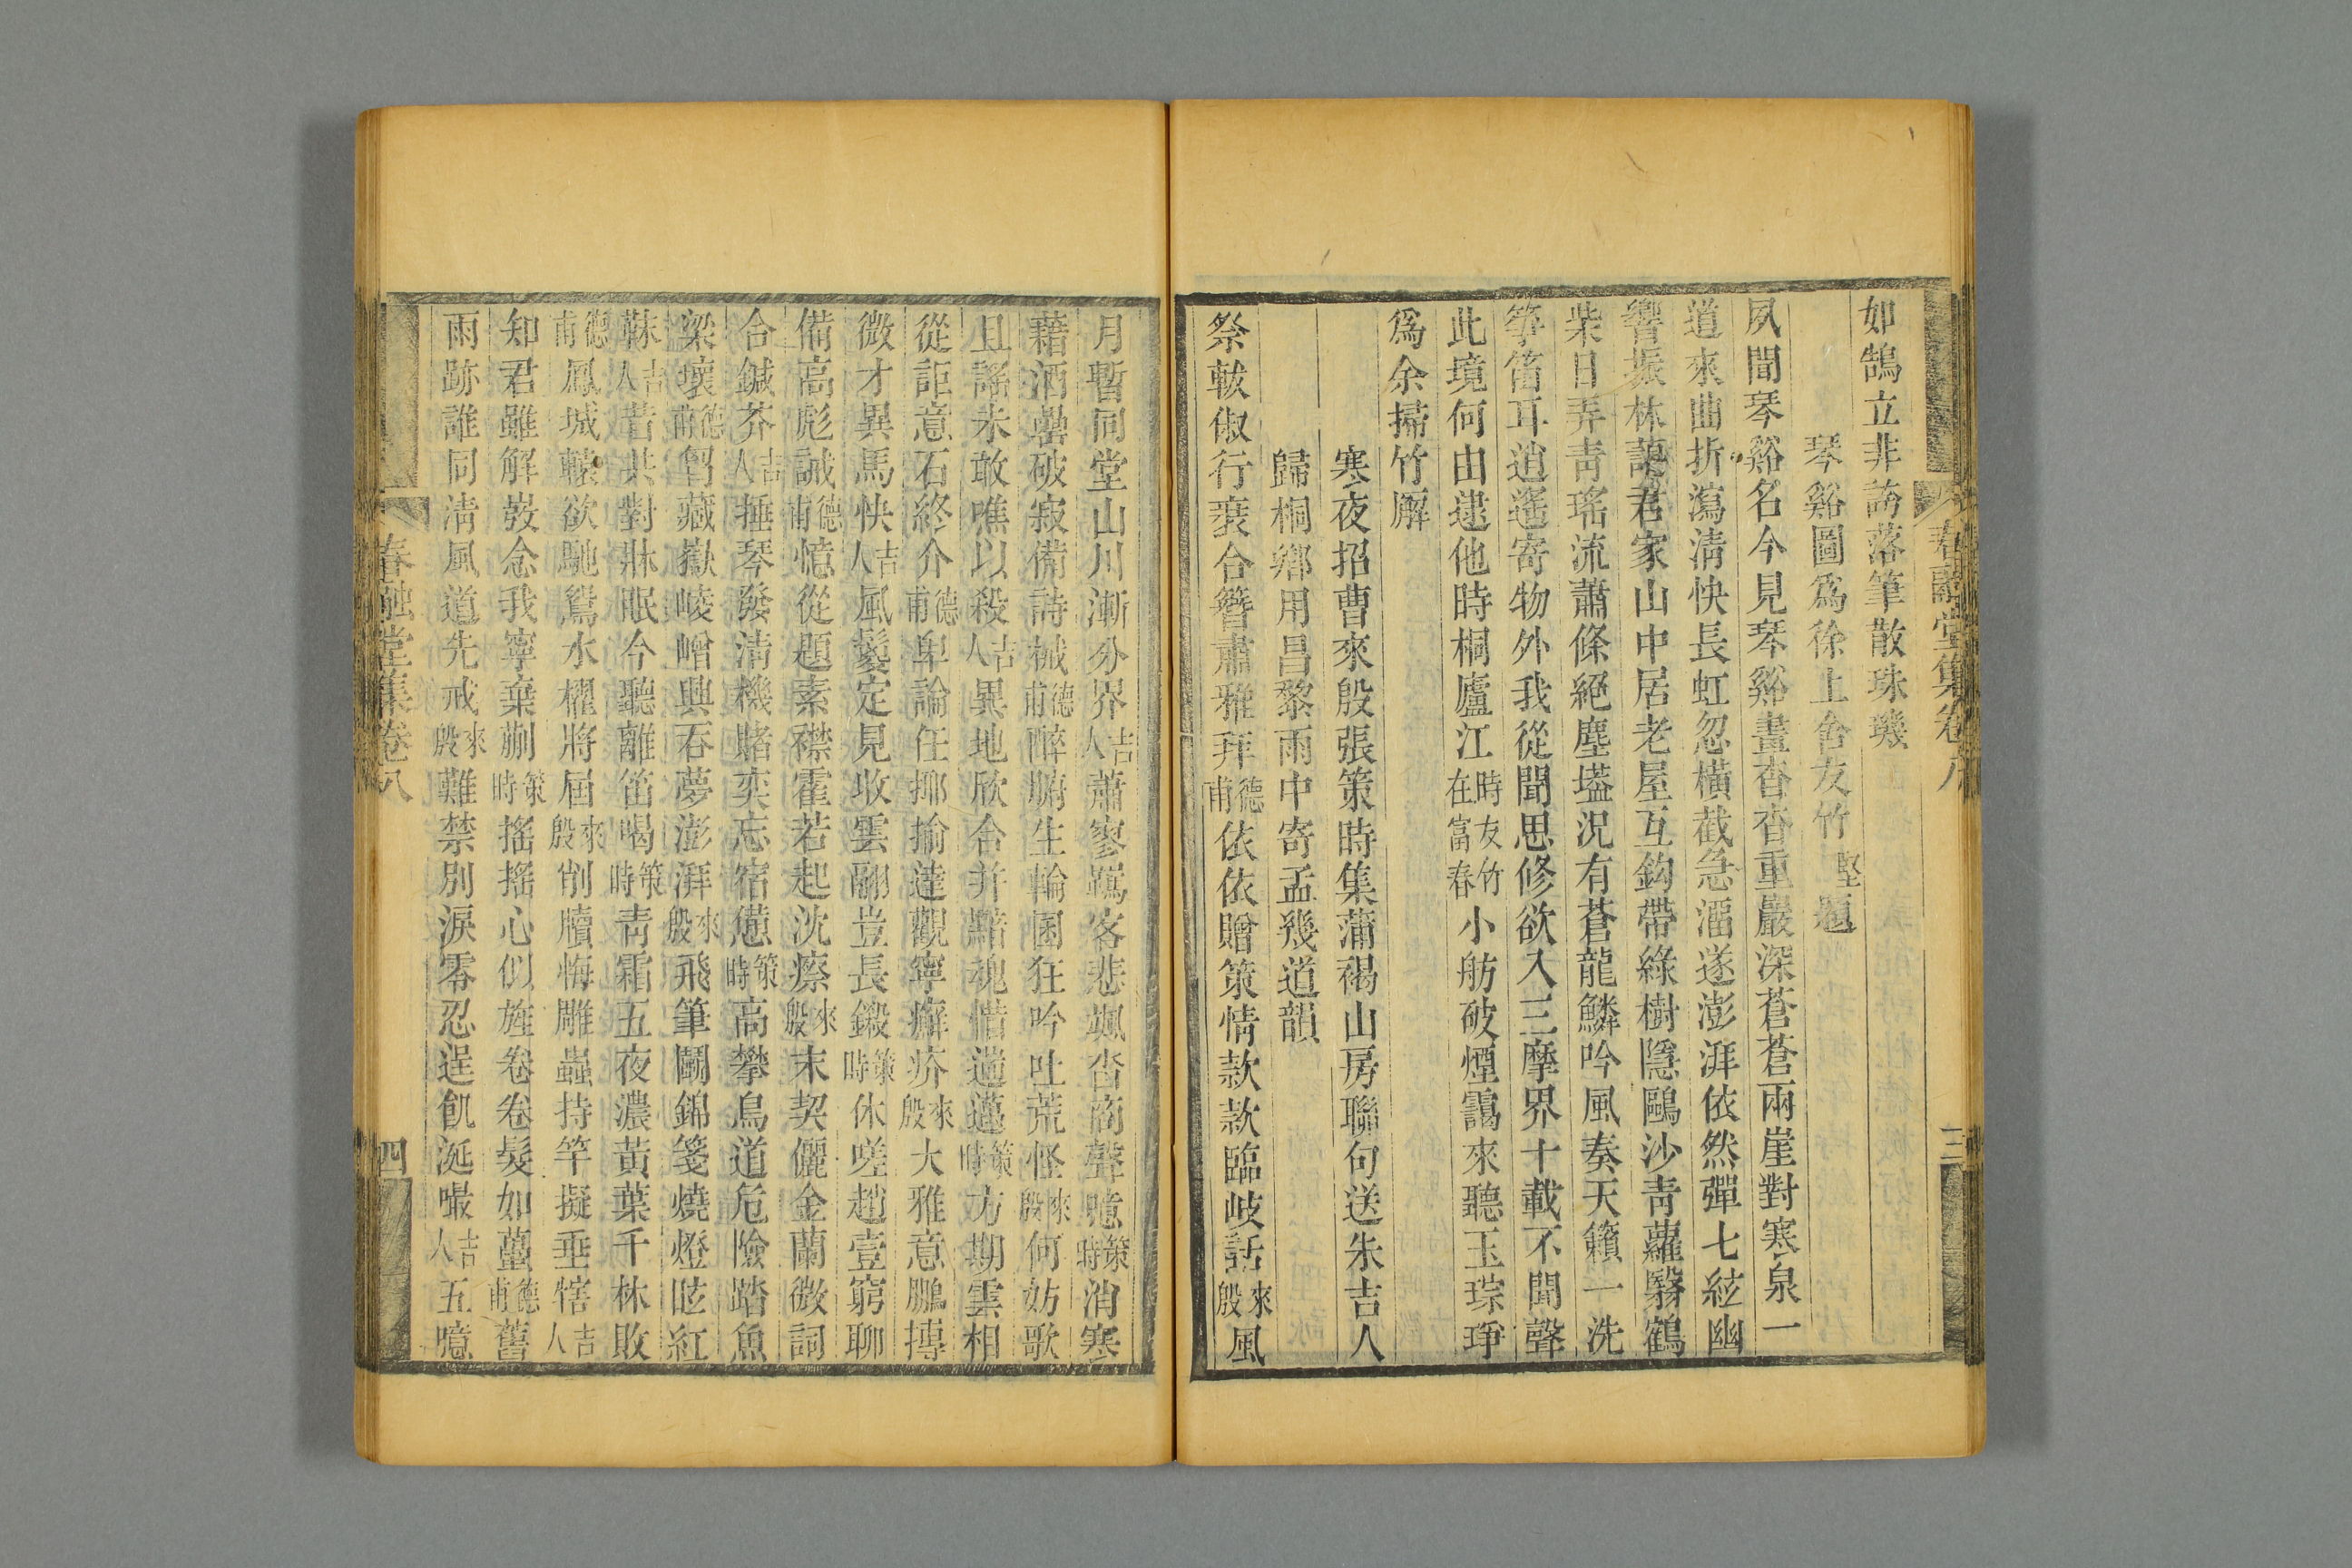 春融堂集卷八
三
如鵠立非誇落筆散珠璣
琴谿圖爲徐上舍友竹堅題
夙聞琴谿名今見琴谿畫杳杳重巖深蒼蒼兩崖對寒泉一
道來曲折瀉清快長虹忽橫截急溜遂澎湃依然彈七絃幽
響振林藹君家山中居老屋互鈎帶綠樹隱鷗沙青蘿翳鶴
柴日弄青瑤流蕭條絕塵壒況有蒼龍鱗吟風奏天籟一洗
箏笛耳逍遙寄物外我從聞思修欲入三摩界十載不聞聲
此境何由逮他時桐廬江時友竹在富春小舫破煙靄來聽玉琮琤
爲余掃竹廨
寒夜招曹來殷張策時集蒲褐山房聯句送朱吉人
歸桐鄉用昌黎雨中寄孟幾道韻
祭軷俶行裝合簪肅雅拜德甫依依贈策情款款臨歧話來殷風
月暫同堂山川漸分界吉人蕭寥羈客悲颯杳商聲噫策時消寒
藉酒鼎破寂備詩械德甫酔腸生輪囷狂吟吐荒怪來殷何妨歌
且謠未敢噍以殺吉人異地欣合并黯魂惜逝邁策時方期雲相
從詎意石終介德甫卑論任揶揄達觀寧癬疥來殷大雅意鵬摶
微才異馬快吉人風鬟定見收雲翮豈長鎩策時休嗟趙壹窮聊
備高彪誡德甫憶從題素襟霍若起沈瘵來殷末契儷金蘭微詞
合鍼芥吉人捶琴發清機賭奕忘宿憊策時高攀鳥道危險踏魚
梁壞德甫芻藏嶽崚嶒興吞夢澎湃來殷飛筆鬬錦箋燒燈眩紅
靺吉人昔共對牀眠今聽離笛喝策時青霜五夜濃黃葉千林敗
德甫鳳城轅欲馳鴛水櫂將屆來殷削牘悔雕蟲持竿擬垂犗吉人
知君雖解㪍念我寧棄蒯策時搖搖心似旌卷卷髮如蠆德甫舊
雨跡誰同清風道先戒來殷難禁別淚零忍逞飢涎嘬吉人五噫
春融堂集卷八
四